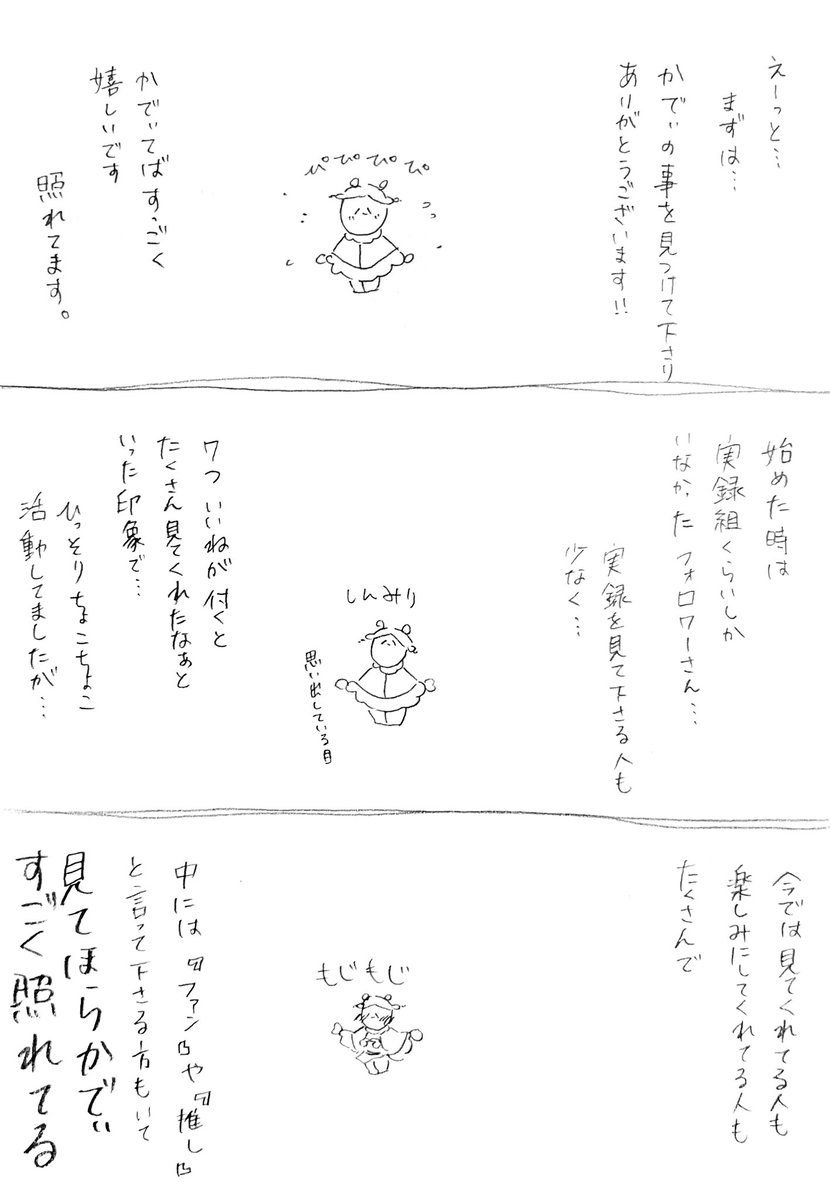 えーっと…
まずは…
かでぃの事を見つけて下さり
ありがとうございます!!
ぴぴぴぴぴ
かでぃてばすっごく
嬉しいです
照れてます。
始めた時は
実録組くらいしか
いなかったフォロワーさん…
実録を見て下さる人も
少なく…
しんみり
思い出している目
7つ いいねが付くと
たくさん見てくれたなぁと
いった印象で…
ひっそりちょこちょこ
活動してましたが…
今では見てくれてる人も
楽しみにしてくれてる人も
たくさんで
もじもじ
中には『ファン』や『推し』
と言って下さる方もいて
見てほらかでぃ
すごく照れてる